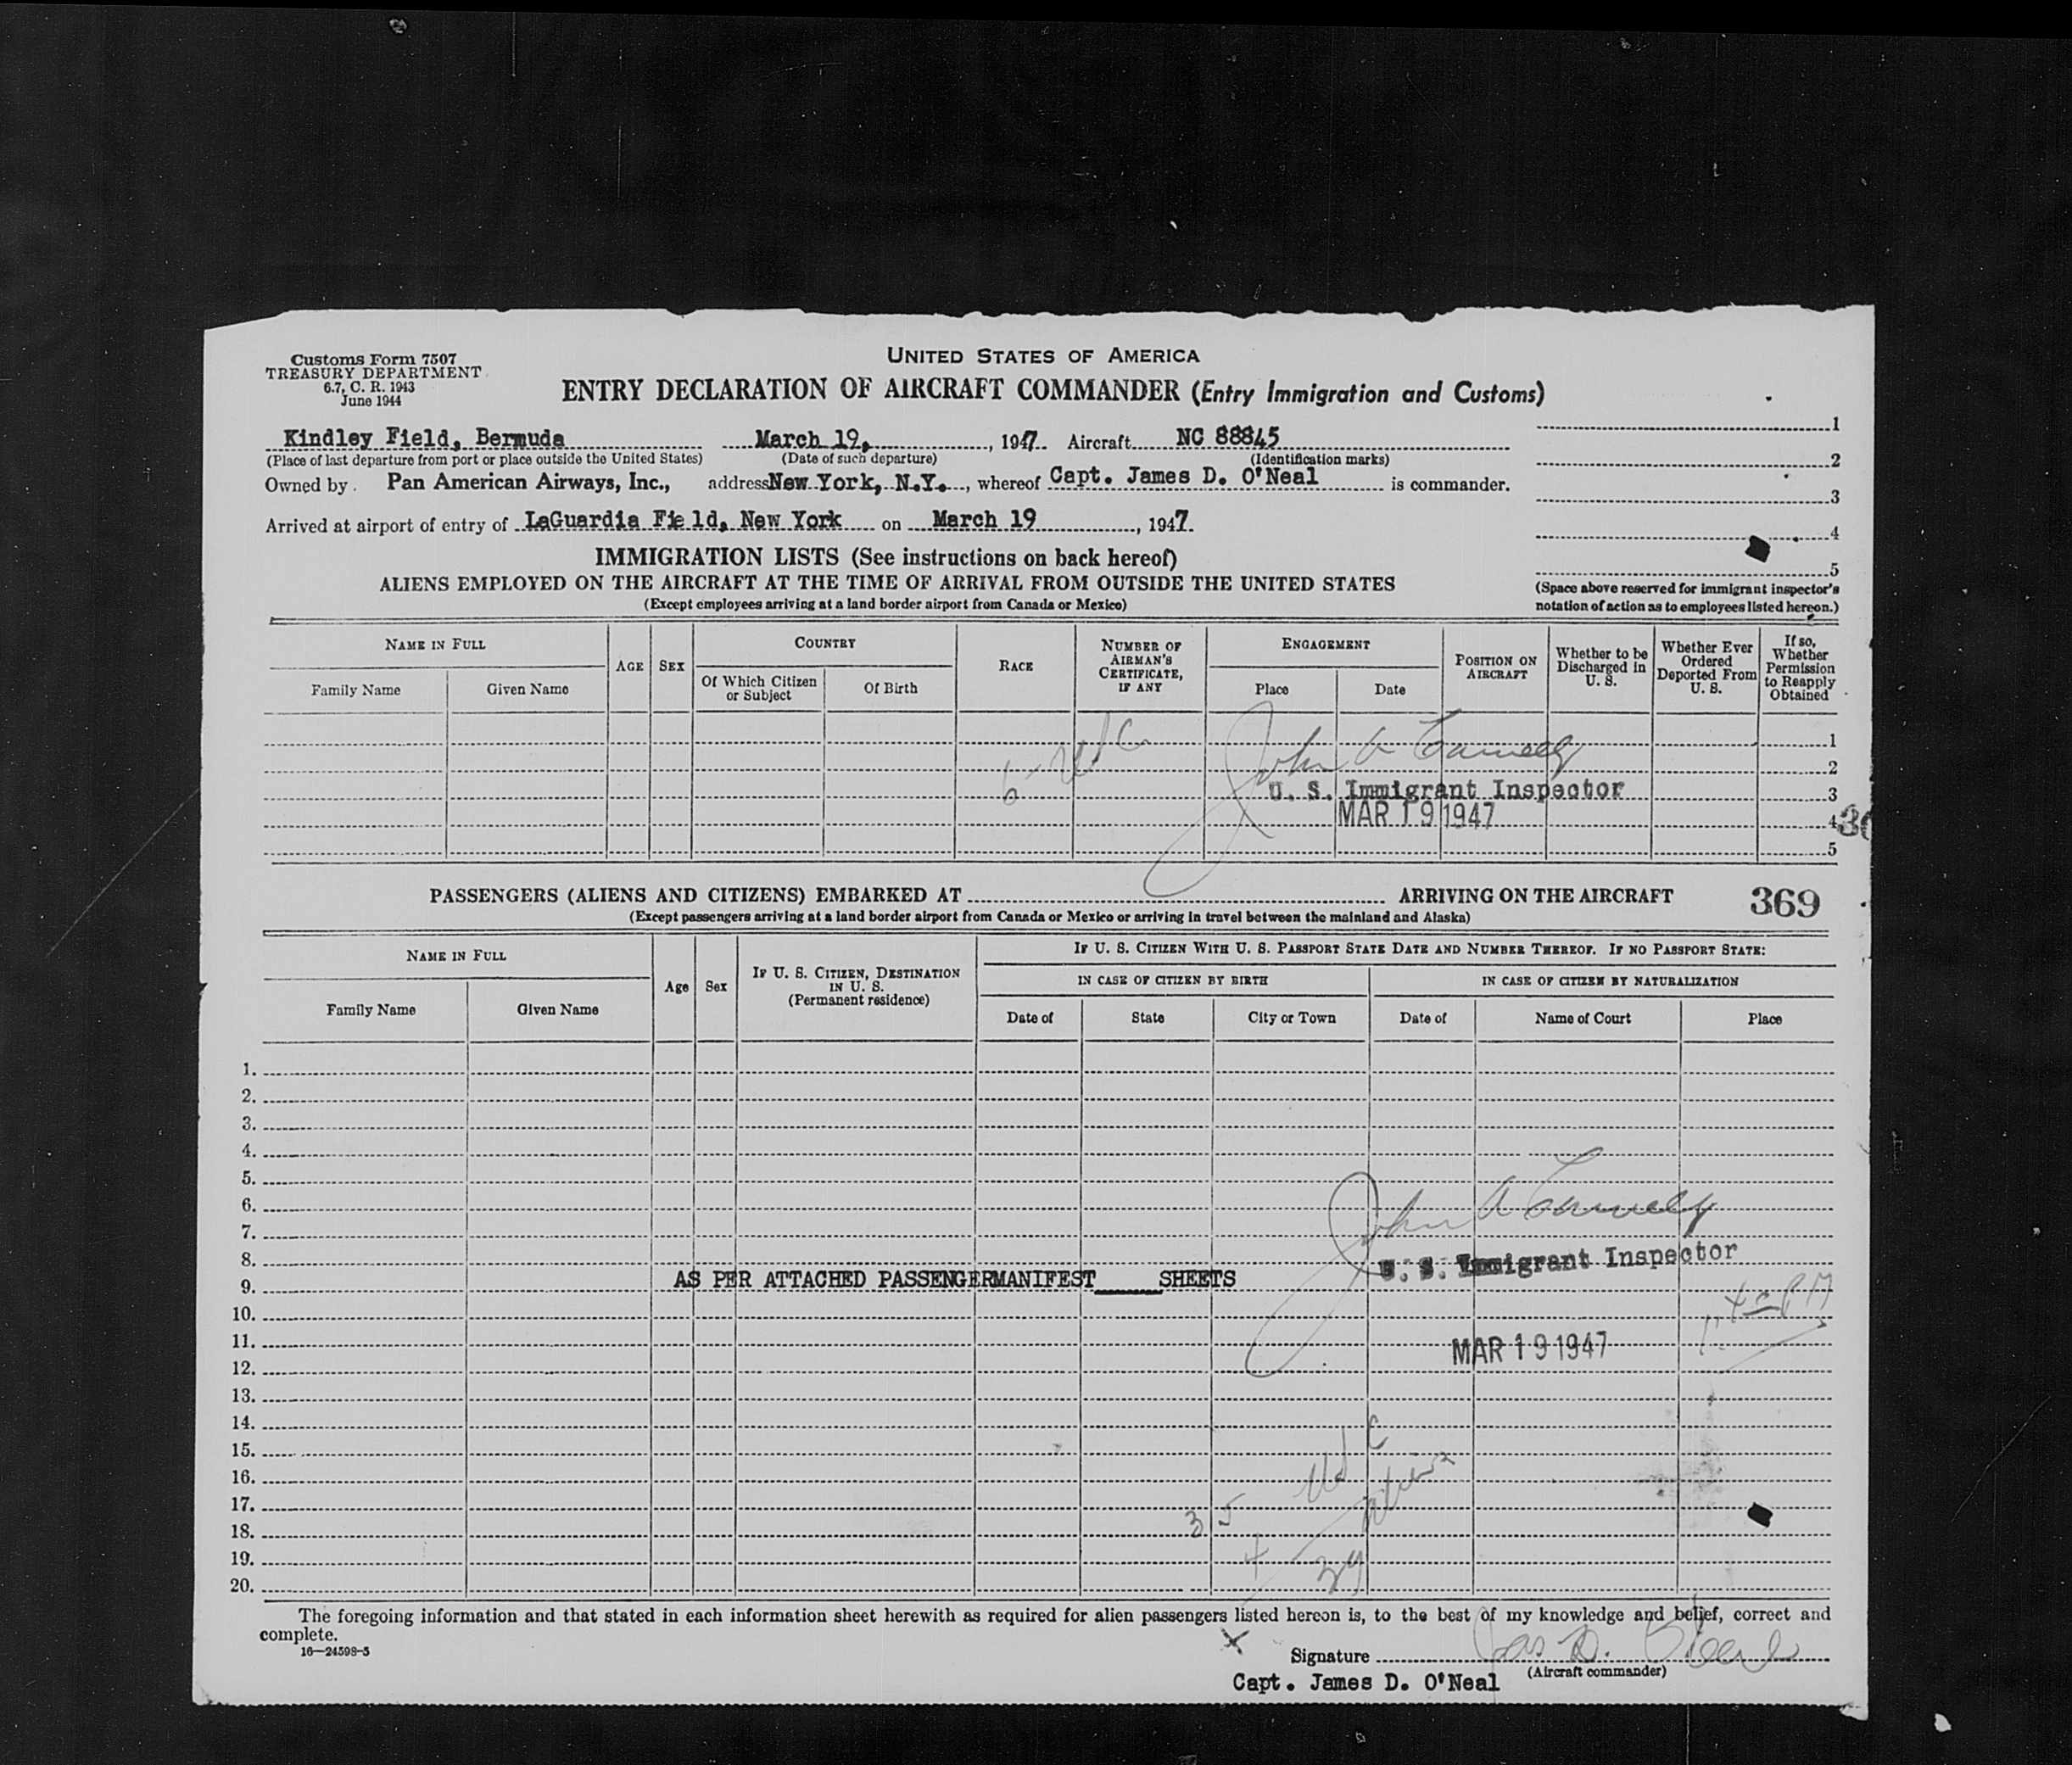 Customs Form 7507
TREASURY DEPARTMENT
6.7, C. R. 1943
June 1944
UNITED STATES OF AMERICA
ENTRY DECLARATION OF AIRCRAFT COMMANDER (Entry Immigration and Customs)
Kindley Field, Bermuda March 19, 1947 Aircraft NC 88845
(Place of last departure from port or place outside the United States) (Date of such departure) (Identification marks)
Owned by Pan American Airways, Inc., address New York, N.Y., whereof Capt. James D. O'Neal is commander.
Arrived at airport of entry of LaGuardia Field, New York on March 19, 1947.
1
2
3
4
5
(Space above reserved for immigrant inspector's
notation of action as to employees listed hereon.)
IMMIGRATION LISTS (See instructions on back hereof)
ALIENS EMPLOYED ON THE AIRCRAFT AT THE TIME OF ARRIVAL FROM OUTSIDE THE UNITED STATES
(Except employees arriving at a land border airport from Canada or Mexico)
NAME IN FULL
Family Name Given Name
AGE SEX
COUNTRY
Of Which Citizen or Subject Of Birth
RACE
NUMBER OF AIRMAN'S CERTIFICATE, IF ANY
ENGAGEMENT
Place Date
POSITION ON AIRCRAFT
Whether to be Discharged in U. S.
Whether Ever Ordered Deported From U. S.
If so, Whether Permission to Reapply Obtained
1
2
3
4
5
U. S. Immigrant Inspector
MAR 19 1947
PASSENGERS (ALIENS AND CITIZENS) EMBARKED AT ARRIVING ON THE AIRCRAFT 369
(Except passengers arriving at a land border airport from Canada or Mexico or arriving in travel between the mainland and Alaska)
NAME IN FULL
Family Name Given Name
Age Sex
IF U. S. CITIZEN, DESTINATION IN U. S.
(Permanent residence)
IF U. S. CITIZEN WITH U. S. PASSPORT STATE DATE AND NUMBER THEREOF. IF NO PASSPORT STATE:
IN CASE OF CITIZEN BY BIRTH IN CASE OF CITIZEN BY NATURALIZATION
Date of State City or Town Date of Name of Court Place
1.
2.
3.
4.
5.
6.
7.
8.
U. S. Immigrant Inspector
9. AS PER ATTACHED PASSENGER MANIFEST SHEETS
10.
11.
MAR 19 1947
12.
13.
14.
15.
16.
17.
35
18.
19.
20.
The foregoing information and that stated in each information sheet herewith as required for alien passengers listed hereon is, to the best of my knowledge and belief, correct and
complete.
16—24598-5
Signature
(Aircraft commander)
Capt. James D. O'Neal